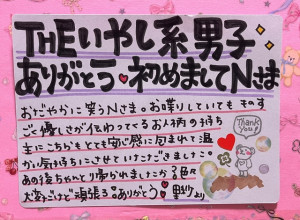 THEいやし系男子
ありがとう♥初めましてNさま
おだやかに笑うNさま。お喋りしていても そのす
ごく優しさが伝わってくるお人柄の持ち
主にこちらもとっても安心感に包まれて温
かい気持ちにさせていただきました。
あの後ちゃんと帰られましたか
大変だけど頑張ろ。ありがとう♥
Thank
You!